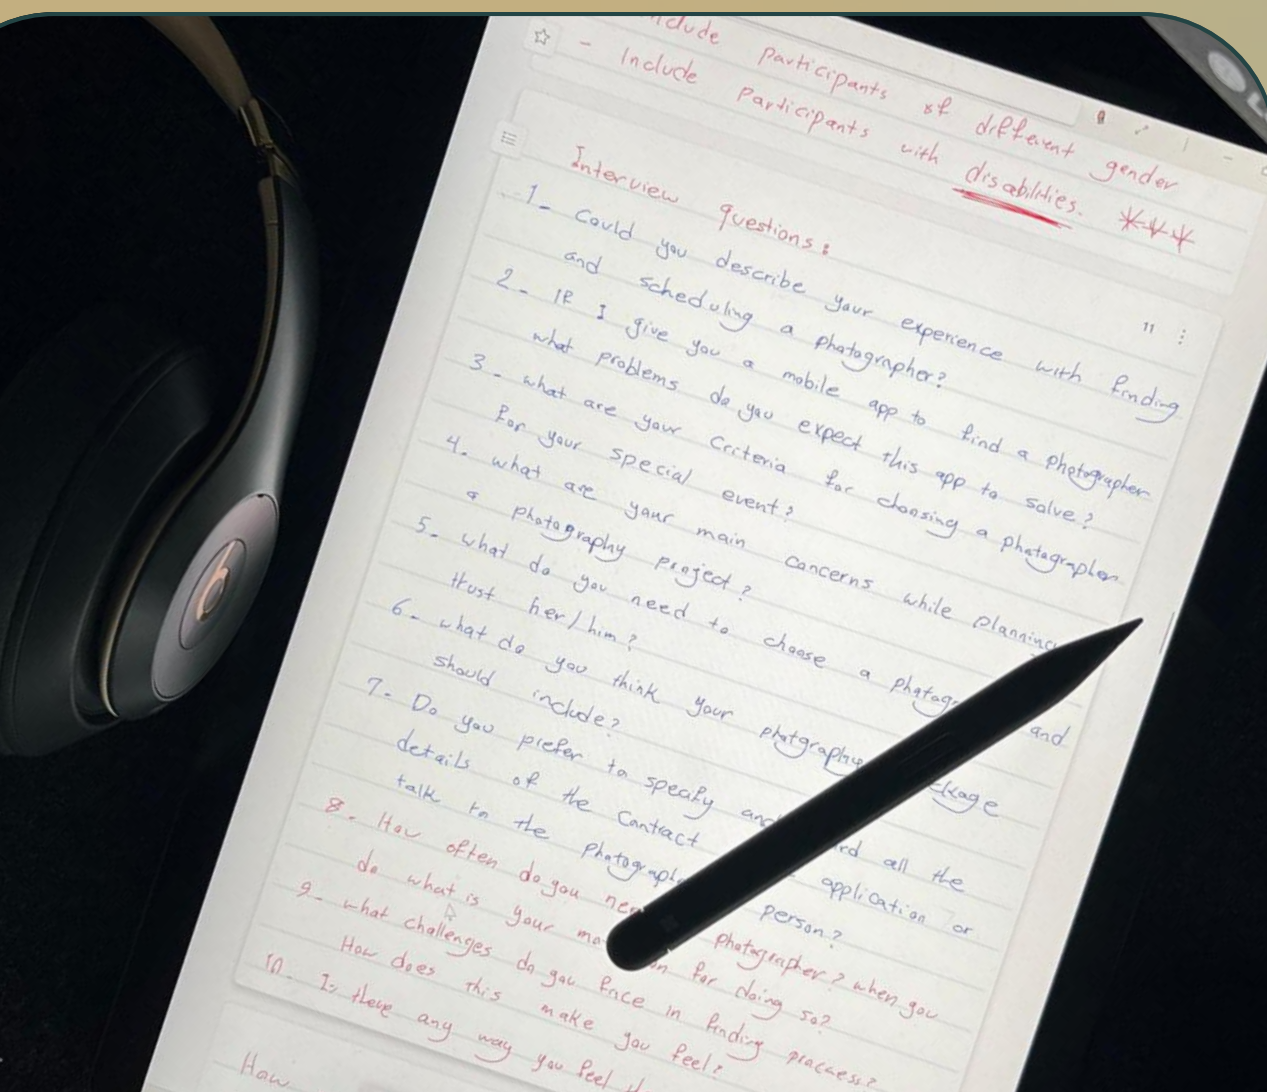 include participants of different gender
- Include participants with disabilities. ***
Interview questions:
11
1- Could you describe your experience with finding
and scheduling a photographer?
2- If I give you a mobile app to find a photographer
what problems do you expect this app to solve?
3- what are your Criteria for choosing a photographer
for your special event?
4. what are your main concerns while planning
a photography project?
5- what do you need to choose a and
trust her/him?
6- what do you think your
should include?
7- Do you prefer to specify all the
details of the Contract application or
talk to the person?
8- How often do you photographer? when you
do what is your for doing so?
9- what challenges do you face in finding proccess?
How does this make you feel?
10- Is there any way you feel
How
b